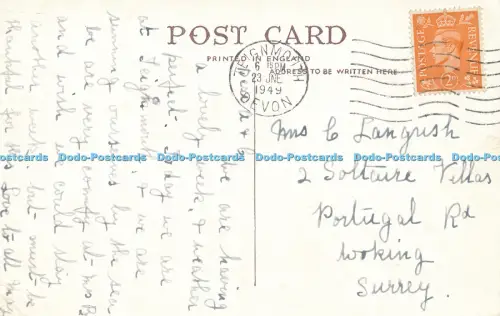 POST CARD
PRINTED IN ENGLAND
ADDRESS TO BE WRITTEN HERE
TEIGNMOUTH
6 15PM
23 JNE
1949
DEVON
POSTAGE REVENUE
we are having
a lovely week, & weather
perfect. Today we are
at Teignmouth & we are
sunning ourselves by the sea
be are very comfy at Mrs B
and wish we could stay
another week but must be
thankful for this Love to all
Mrs C Langrish
2 Soltaire Villas
Portugal Rd
Woking
Surrey.
Dodo-Postcards Dodo-Postcards Dodo-Postcards Dodo-Postcards Dodo-Postcards Dodo-Postcards